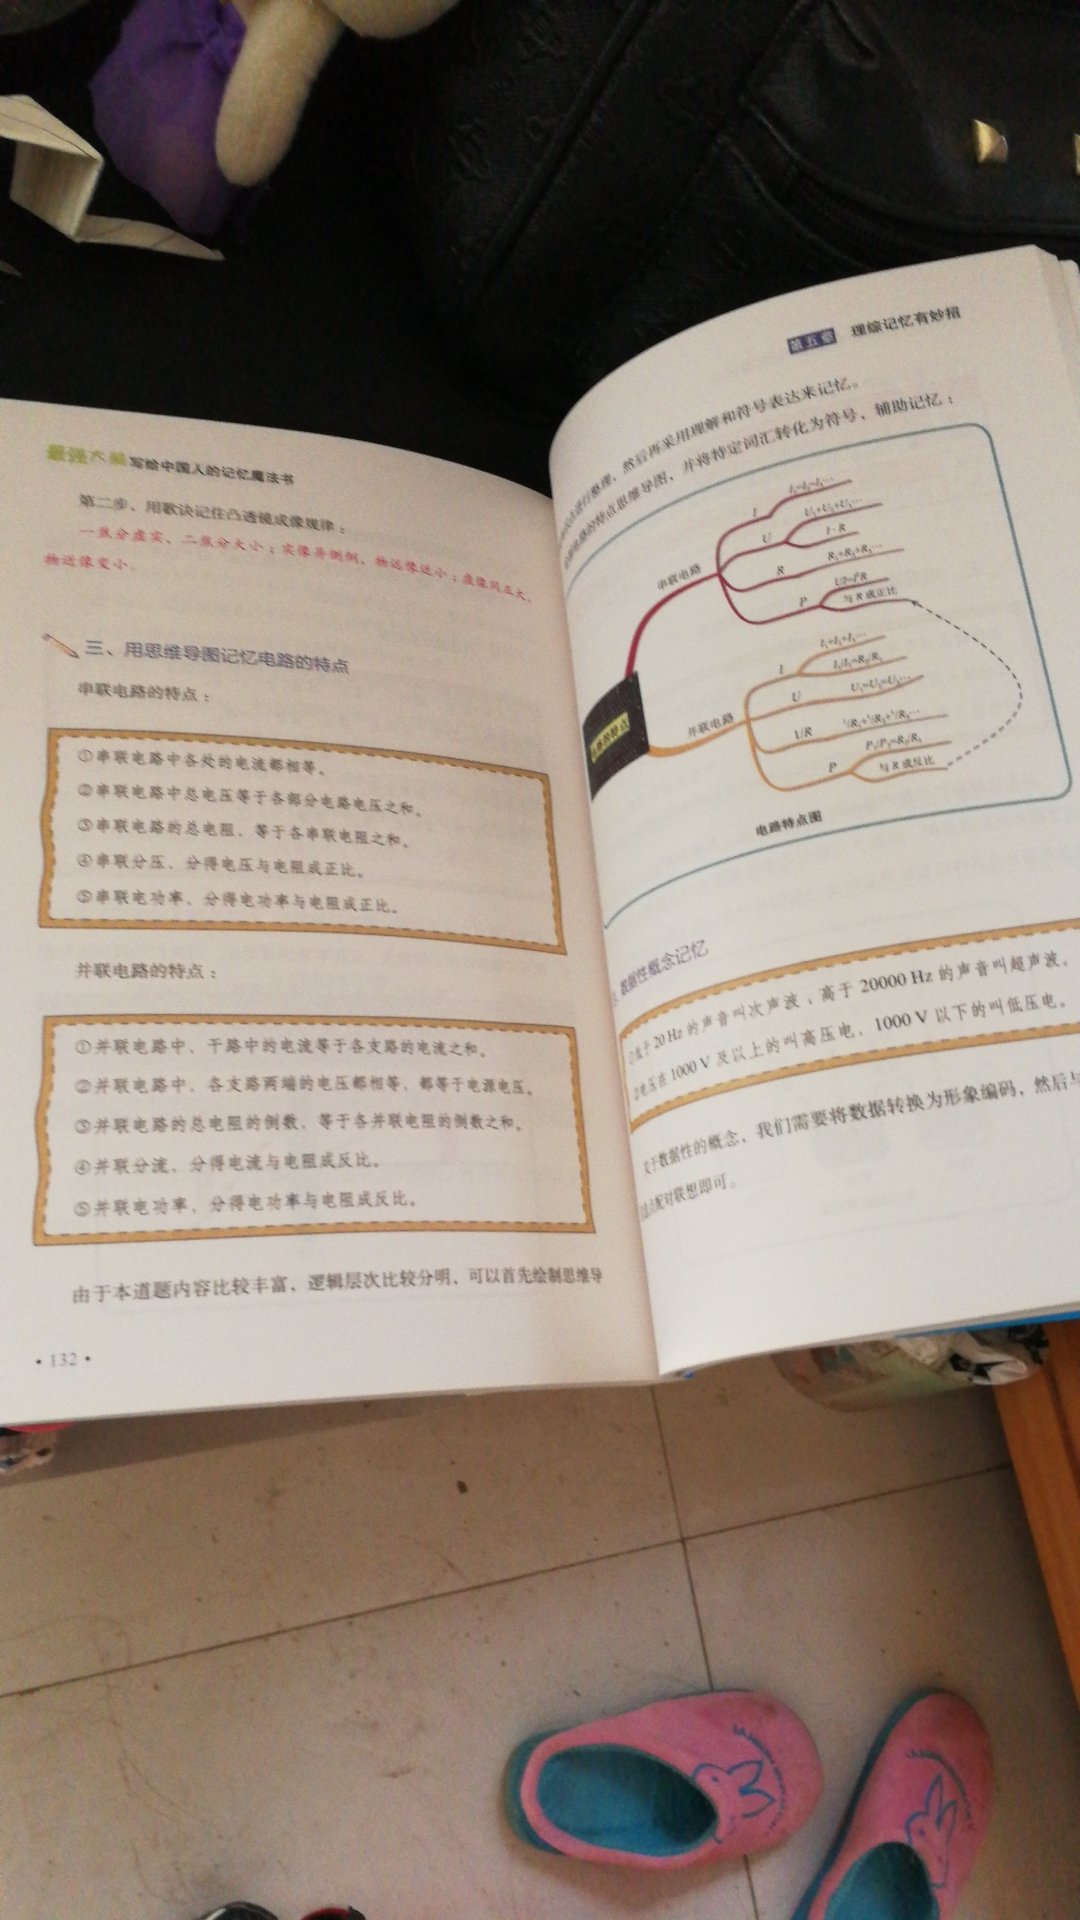 最强大脑 写给中国人的记忆魔法书
第二步,用歌诀记住凸透镜成像规律:
一焦分虚实,二焦分大小;实像异侧倒,物远像近小;虚像同正大,
物近像变小。
三、用思维导图记忆电路的特点
串联电路的特点:
①串联电路中各处的电流都相等。
②串联电路中总电压等于各部分电路电压之和。
③串联电路的总电阻,等于各串联电阻之和。
④串联分压,分得电压与电阻成正比。
⑤串联电功率,分得电功率与电阻成正比。
并联电路的特点:
①并联电路中,干路中的电流等于各支路的电流之和。
②并联电路中,各支路两端的电压都相等,都等于电源电压。
③并联电路的总电阻的倒数,等于各并联电阻的倒数之和。
④并联分流,分得电流与电阻成反比。
⑤并联电功率,分得电功率与电阻成反比。
由于本道题内容比较丰富,逻辑层次比较分明,可以首先绘制思维导
• 132 •
第五章 理综记忆有妙招
进行整理,然后再采用理解和符号表达来记忆。
电路的特点思维导图,并将特定词汇转化为符号,辅助记忆:
电路的特点
串联电路
I
I₁=I₂=I₃…
U
U₁+U₂+U₃…
I·R
R
R₁+R₂+R₃…
P
UI=I²R
与R成正比
并联电路
I
I₁+I₂+I₃…
I₁/I₂=R₂/R₁
U
U₁=U₂=U₃…
1/R
¹/R₁+¹/R₂+¹/R₃…
P
P₁/P₂=R₂/R₁
与R成反比
电路特点图
数据性概念记忆
①低于20 Hz的声音叫次声波,高于20000 Hz的声音叫超声波。
②电压在1000 V及以上的叫高压电,1000 V以下的叫低压电。
关于数据性的概念,我们需要将数据转换为形象编码,然后与
配对联想即可。